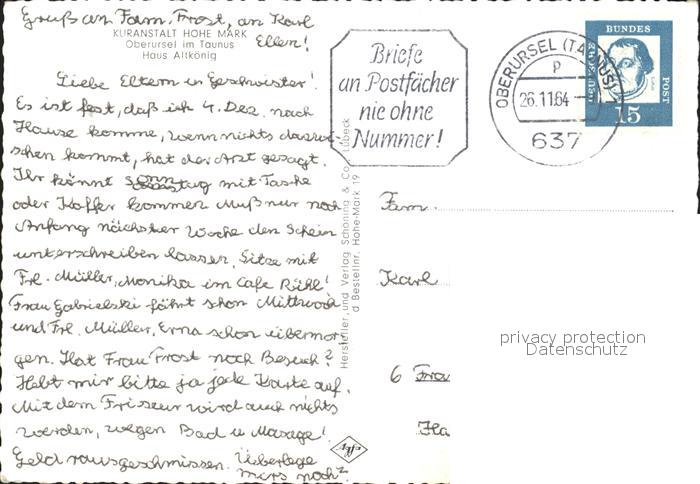 Gruß an Fam. Frost, an Karl
Ellen!
KURANSTALT HOHE MARK
Oberursel im Taunus
Haus Altkönig
Liebe Eltern u Geschwister!
Es ist fest, daß ich 4. Dez. nach
Hause komme, wenn nichts dazwi-
schen kommt, hat der Arzt gesagt.
Ihr könnt sonntag mit Tasche
oder Koffer kommen. Muß nur noch
Anfang nächster Woche den Schein
unterschreiben lassen. Sitze mit
Frl. Müller, Monika im Cafe Rühl!
Frau Gabrielski fährt schon Mittwoch
und Frl. Müller, Erna schon übermor-
gen. Hat Frau Frost noch Besuch?
Hebt mir bitte ja jede Karte auf.
Mit dem Friseur wird auch nichts
werden, wegen Bad u Massage!
Geld rausgeschmissen. Überlege
mirs noch?
Hersteller und Verlag Schöning & Co., Lübeck
d Bestellnr. Hohe-Mark 19
agfa
Briefe
an Postfächer
nie ohne
Nummer!
OBERURSEL (TAUNUS) 1
p
26.11.64
637
DEUTSCHE
BUNDES
POST
15
Fam.
Karl
6 Fra
Ha
privacy protection
Datenschutz